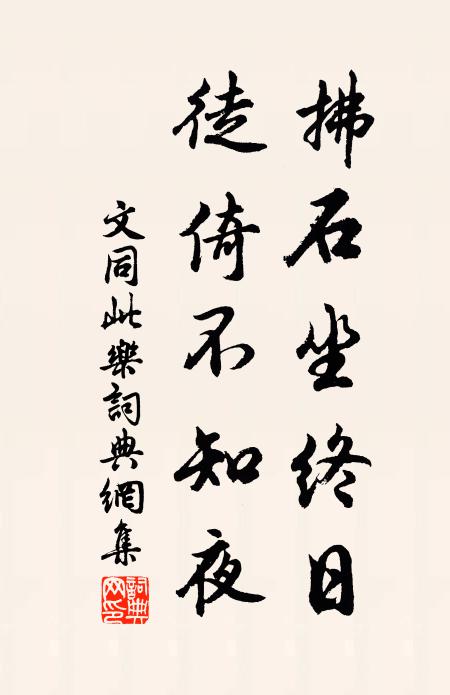 拂石坐終日
徒倚不知夜
文同此樂詞典網集
詞典網印